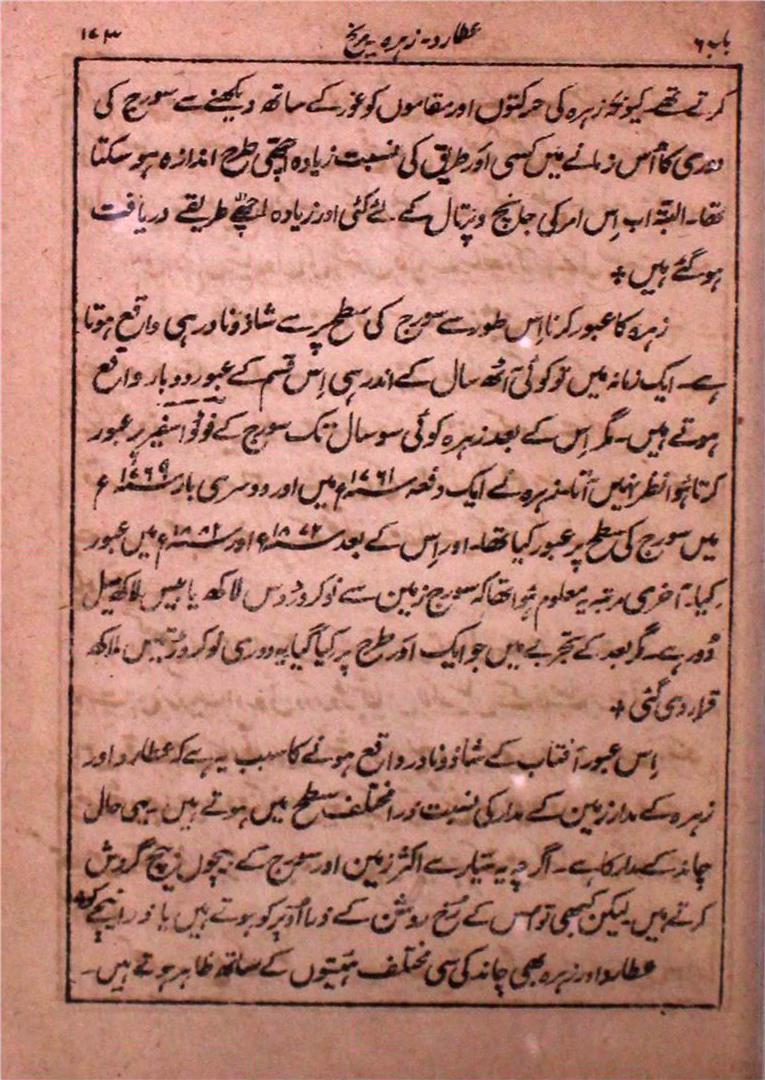 باب ۶ عطارد۔ زہرہ۔ مریخ ۱۷۳
کرتے تھے۔ کیونکہ زہرہ کی حرکتوں اور مقاموں کو غور کے ساتھ دیکھنے سے سورج کی
دوری کا اُس زمانے میں کسی اَور طریق کی نسبت زیادہ اچھی طرح اندازہ ہو سکتا
تھا۔ البتہ اب اِس امر کی جانچ و پڑتال کے لئے کئی اور زیادہ اچھے طریقے دریافت
ہو گئے ہیں +
زہرہ کا عبور کرنا اِس طور سے سورج کی سطح پر سے شاذ و نادر ہی واقع ہوتا
ہے۔ ایک زمانہ میں تو کوئی آٹھ سال کے اندر ہی اِس قسم کے عبور دو بار واقع
ہوتے ہیں۔ مگر اِس کے بعد زہرہ کوئی سو سال تک سورج کے فوٹو اسفیر پر عبور
کرتا ہُوا نظر نہیں آتا۔ زہرہ نے ایک دفعہ سنہ ۱۷۶۱ء میں اور دوسری بار سنہ ۱۷۶۹ء
میں سورج کی سطح پر عبور کیا تھا۔ اور اِس کے بعد سنہ ۱۸۷۴ء اور سنہ ۱۸۸۲ء میں عبور
کیا۔ آخری مرتبہ یہ معلوم ہُوا تھا کہ سورج زمین سے نو کروڑ دس لاکھ یا بیس لاکھ میل
دُور ہے۔ مگر بعد کے تجربے میں جو ایک اَور طرح پر کیا گیا یہ دوری نو کروڑ تیس لاکھ
قرار دی گئی +
اِس عبور آفتاب کے شاذ و نادر واقع ہونے کا سبب یہ ہے کہ عطارد اور
زہرہ کے مدار زمین کے مدار کی نسبت ذرا مختلف سطح میں ہوتے ہیں۔ یہی حال
چاند کے مدار کا ہے۔ اگرچہ یہ سیارے اکثر زمین اور سورج کے بیچوں بیچ گردش
کرتے ہیں۔ لیکن کبھی تو اس کے رُخ روشن کے ذرا اُوپر کو ہوتے ہیں یا ذرا نیچے کو +
عطارد اور زہرہ بھی چاند کی سی مختلف ہیئتوں کے ساتھ ظاہر ہوتے ہیں۔